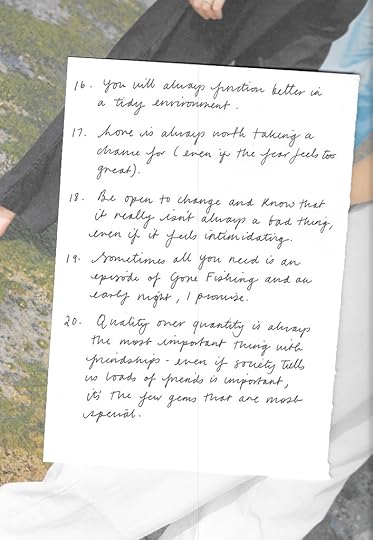 16. You will always function better in
a tidy environment.
17. Love is always worth taking a
chance for (even if the fear feels too
great).
18. Be open to change and know that
it really isn't always a bad thing,
even if it feels intimidating.
19. Sometimes all you need is an
episode of Gone Fishing and an
early night, I promise.
20. Quality over quantity is always
the most important thing with
friendships - even if society tells
us loads of friends is important,
it's the few gems that are most
special.